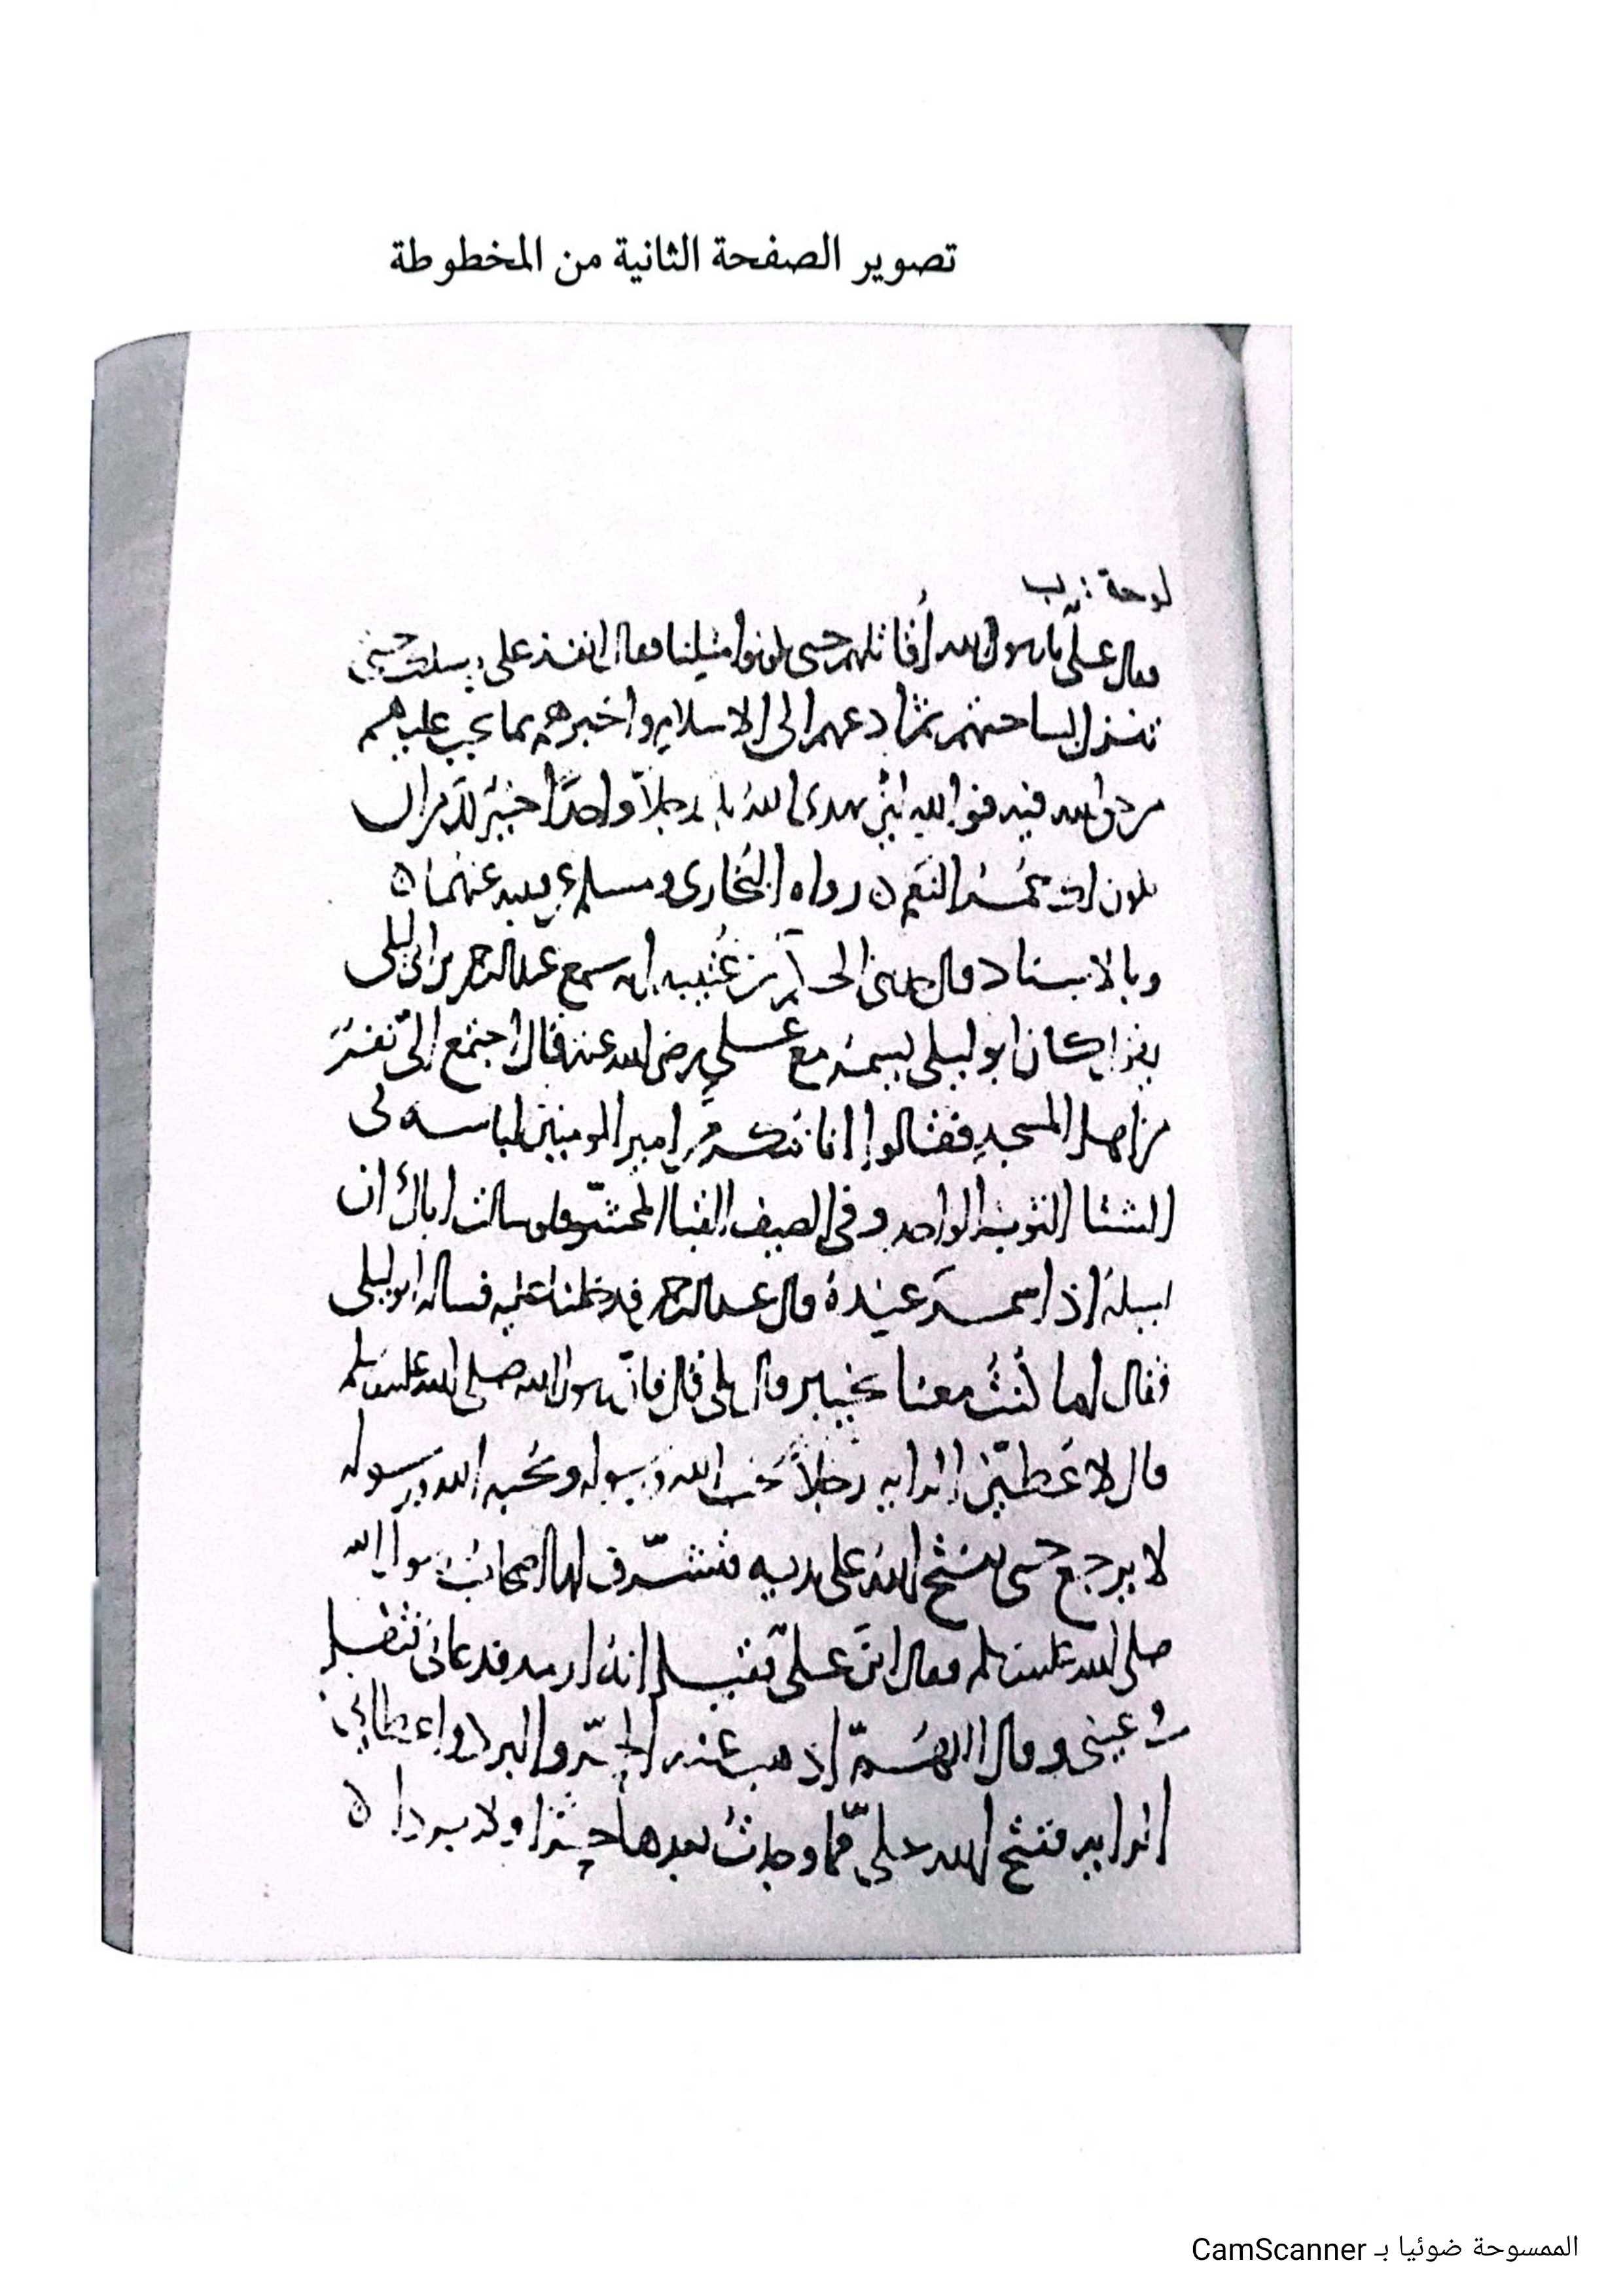 تصوير الصفحة الثانية من المخطوطة
لوحة : ب
فقال علي يا رسول الله أقاتلهم حتى يكونوا مثلنا فقال انفذ على رسلك حتى
تنزل بساحتهم ثم ادعهم الى الاسلام واخبرهم بما يجب عليهم
من حق الله فيه فوالله لئن يهدى الله بك رجلاً واحداً خير لك من ان
يكون لك حمر النعم ه رواه البخارى ومسلم عن قتيبه عنهما ه
وبالاسناد قال حدثنى الحكم بن عتيبه انه سمع عبد الرحمن بن ابى ليلى
يقول كان ابو ليلى يسمر مع على رضى الله عنه قال اجتمع الىّ نفر
من اهل المسجد فقالوا انا ننكر من امير المومنين لباسه فى
الشتا الثوب الواحد وفى الصيف القبا المحشو فلو سالت اباك ان
يسله اذا سمر عنده قال عبد الرحمن فدخلنا عليه فساله ابو ليلى
فقال اما كنت معنا بخيبر قال بلى قال فان رسول الله صلى الله عليه وسلم
قال لاعطينّ الرايه رجلاً يحب الله ورسوله ويحبه الله ورسوله
لا يرجع حتى يفتح الله على يديه فتشرّف لها اصحاب رسول الله
صلى الله عليه وسلم فقال اين علىّ فقيل انه ارمد فدعانى فتفل
فى عينى وقال اللهمّ اذهب عنه الحرّ والبرد واعطانى
الرايه ففتح الله علىّ فما وجدت بعدها حرا ولا بردا ه
الممسوحة ضوئيا بـ CamScanner